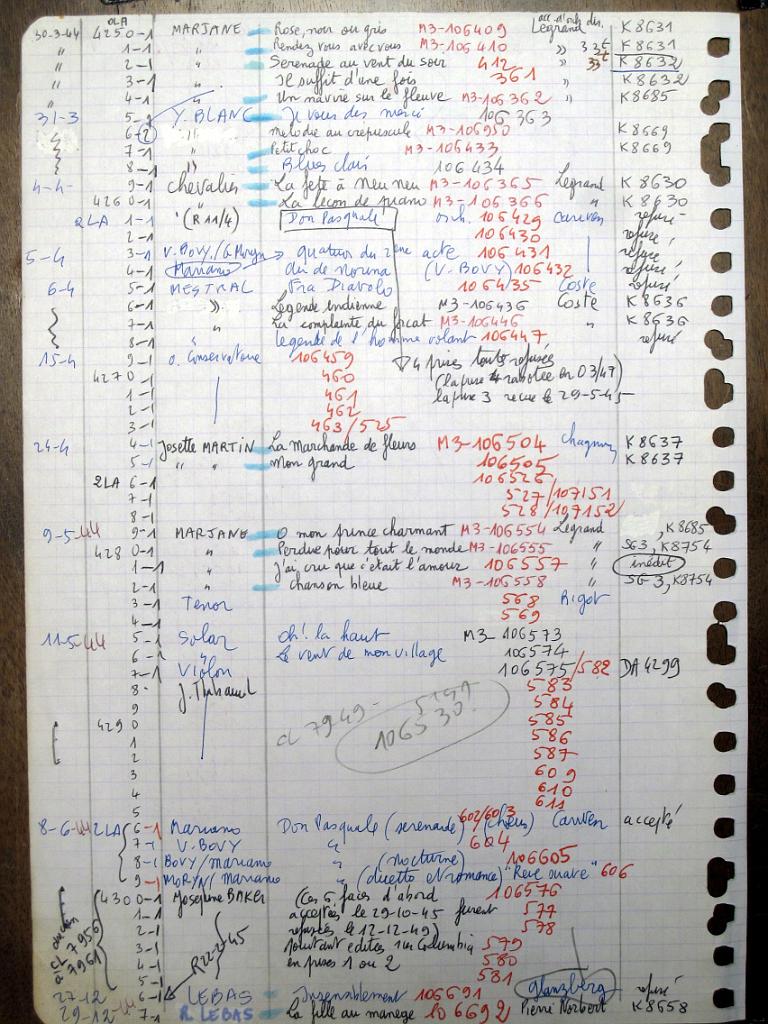 OLA acc. d'orch. dir.
30-3-44 4250-1 MARJANE Rose, noir ou gris M3-106409 Legrand K 8631
" 1-1 " Rendez vous avec vous M3-106410 " 33t K 8631
" 2-1 " Serenade au vent du soir 412 " 33t K 8632
" 3-1 " Il suffit d'une fois 361 K 8632
" 4-1 " Un navire sur le fleuve M3-106362 " K 8685
31-3 5-1 Y. BLANC Je vous dis merci 106363
6-2 " Melodie au crepuscule M3-106950 K 8669
7-1 " Petit choc M3-106433 K 8669
8-1 " Blues clair 106434
4-4- 9-1 Chevalier La fete à Neu neu M3-106365 Legrand K 8630
4260-1 " La leçon de piano M3-106366 " K 8630
2LA 1-1 (R 11/4) Don Pasquale orch. 106429 Cariven refusé
2-1 106430 refusé
5-4 3-1 V. BOVY/G. Moryn quatuor du 2ème acte 106431 refusé
4-1 Mariano air de Norina (V. BOVY) 106432 refusé
6-4 5-1 MESTRAL Fra Diavolo 106435 Coste refusé
6-1 " Legende indienne M3-106436 Coste K 8636
7-1 " La complainte du forcat M3-106446 " K 8636
8-1 " legende de l'homme volant 106447 refusé
15-4 9-1 o. Conservatoire 106459 4 prises toutes refusées
4270-1 460 (la prise 4 rabotée en 03/47)
1-1 461 la prise 3 recue le 29-5-45
2-1 462
3-1 463/525
24-4 4-1 Josette MARTIN La marchande de fleurs M3-106504 Chagnon K 8637
5-1 " " Mon grand 106505 K 8637
2LA 6-1 106526
7-1 527/107151
8-1 528/107152
9-5-44 9-1 MARJANE O mon prince charmant M3-106554 Legrand , K 8685
4280-1 " Perdue pour tout le monde M3-106555 " SG3, K8754
1-1 " J'ai cru que c'était l'amour 106557 " inédit
2-1 " chanson bleue M3-106558 " SG 3, K8754
3-1 Tenor 568 Rigot
4-1 569
11-5-44 5-1 Solar Oh! la haut M3-106573
6-1 " Le vent de mon village 106574
7-1 Violon 106575/582 DA 4299
8- J. Thibaud 583
9 584
4290 cl 7949- 5151 585
1 106530 586
2 587
3 609
4 610
5 611
8-6-44 2LA 6-1 Mariano Don Pasquale (serenade) 602/603 (chœurs) Cariven accepté
7-1 V. BOVY " 604
8-1 BOVY/Mariano " (nocturne) 106605
9-1 MORYN/Mariano " (duetto et romance) "Reve suave" 606
4300-1 Josephine BAKER (Ces 6 faces d'abord 106576
1-1 acceptées le 29-10-45 furent 577
2-1 refusées le 12-12-49) 578
3-1 pourtant editées sur Columbia 579
4-1 en prises 1 ou 2 580
5-1 581
CL 7956 à 7961
R22-2-45
27-12 6-1 LEBAS Insensablement 106691 Glanzberg refusé
29-12-44 7-1 R. LEBAS La fille au manege 106692 Pierre Norbert K 8658